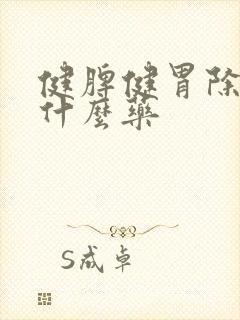 健脾健胃除
什麼藥
S成卓